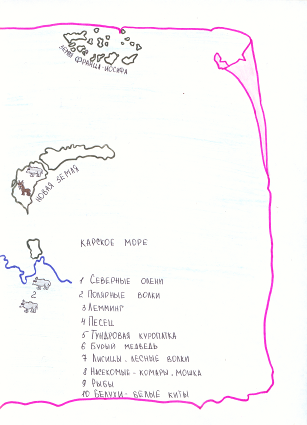 ЗЕМЛЯ ФРАНЦА-ИОСИФА
НОВАЯ ЗЕМЛЯ
КАРСКОЕ МОРЕ
2
1 СЕВЕРНЫЕ ОЛЕНИ
2 ПОЛЯРНЫЕ ВОЛКИ
3 ЛЕММИНГ
4 ПЕСЕЦ
5 ТУНДРОВАЯ КУРОПАТКА
6 БУРЫЙ МЕДВЕДЬ
7 ЛИСИЦЫ, ЛЕСНЫЕ ВОЛКИ
8 НАСЕКОМЫЕ - КОМАРЫ, МОШКА
9 РЫБЫ
10 БЕЛУХИ - БЕЛЫЕ КИТЫ